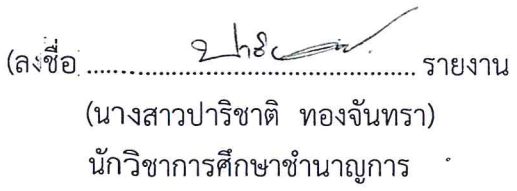 (ลงชื่อ ........................................ รายงาน
(นางสาวปาริชาติ ทองจันทรา)
นักวิชาการศึกษาชำนาญการ